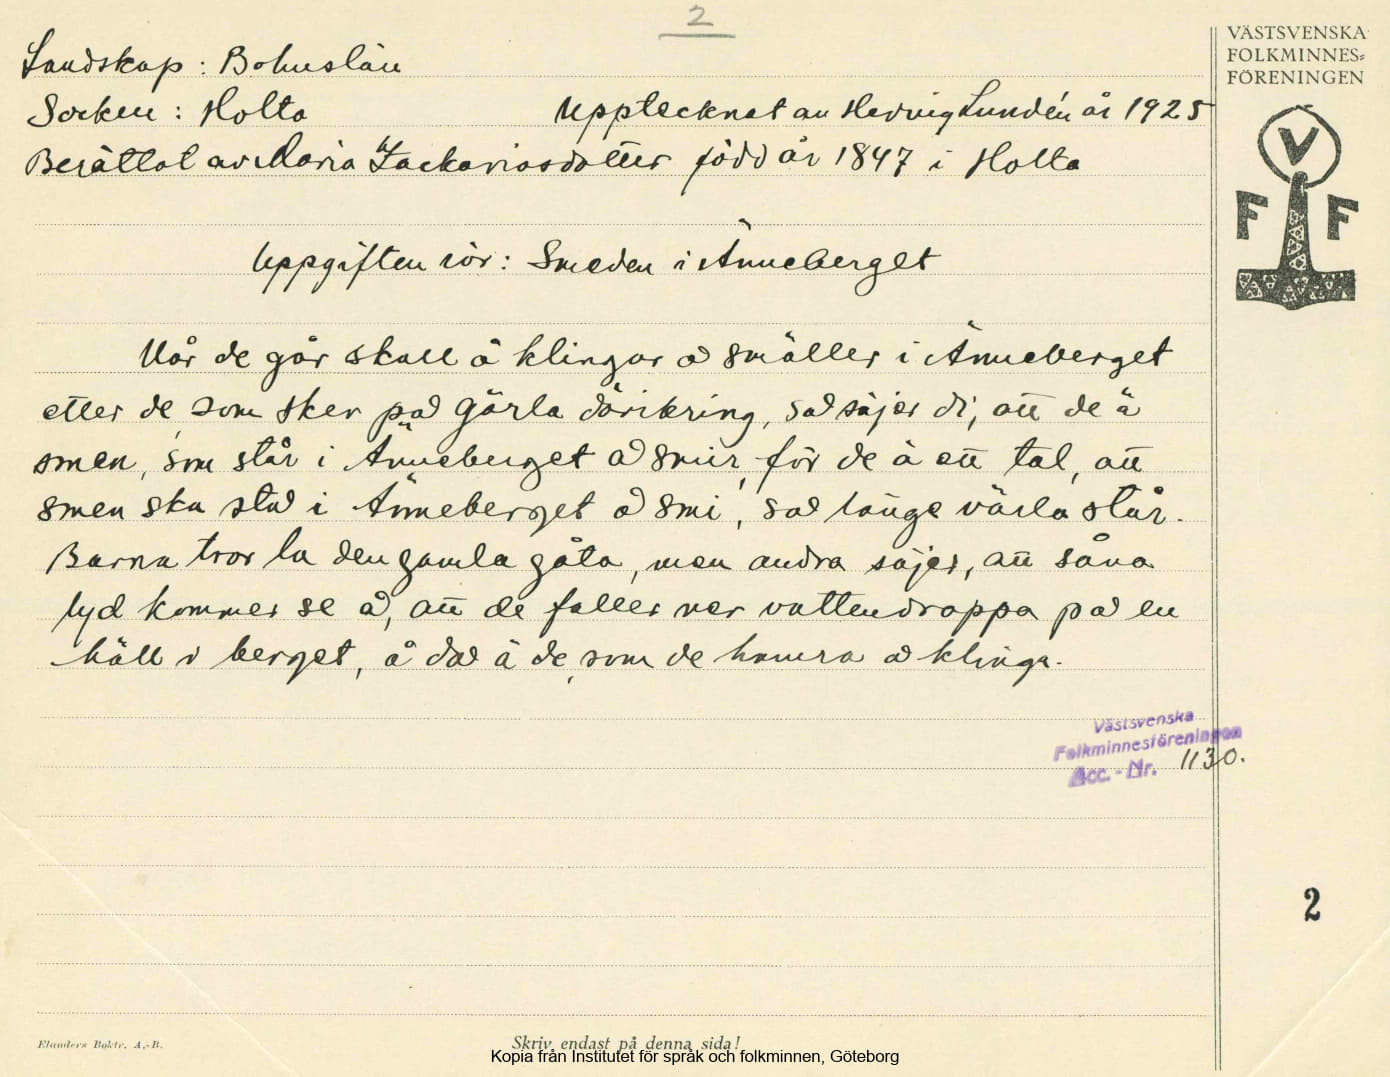 2
VÄSTSVENSKA
FOLKMINNES=
FÖRENINGEN
V
F F
Landskap: Bohuslän
Socken: Holta Upptecknat av Hedvig Lundén år 1925
Berättat av Maria Zackariasdotter född år 1847 i Holta
Uppgiften rör: Smeden i Änneberget
Når de går skall å klingar å smäller i Änneberget
etter de, som sker på gärla därikring, så säjer di, att de ä
smen, som står i Änneberget å smir, för de ä ett tal, att
smen ska stå i Änneberget å smi, så länge värla står.
Barna tror la den gamla gåta, men andra säjer, att såna
lyd kommer se å, att de faller ner vattendrappa på en
häll i berget, å då ä de, som de hamra å klinga.
Västsvenska
Folkminnesföreningen
Acc. - Nr. 1130.
2
Elanders Boktr. A.-B.
Skriv endast på denna sida!
Kopia från Institutet för språk och folkminnen, Göteborg